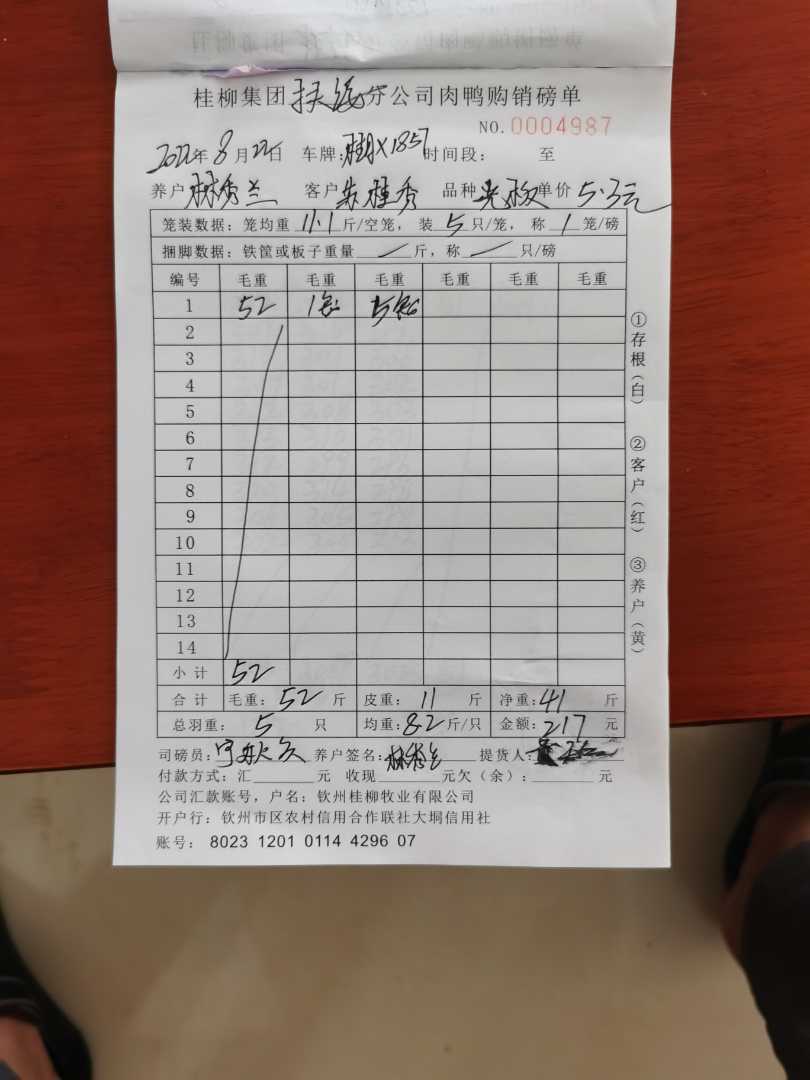 桂柳集团扶绥分公司肉鸭购销磅单
NO.0004987
2022年8月22日 车牌:桂AX1857时间段: 至
养户林秀兰 客户朱桂秀 品种光板单价5.3元
笼装数据:笼均重11.1斤/空笼,装5只/笼,称1笼/磅
捆脚数据:铁筐或板子重量/斤,称/只/磅
编号 毛重 毛重 毛重 毛重 毛重 毛重
1 52 1笼 5只
2
3
4
5
6
7
8
9
10
11
12
13
14
小计 52
合计 毛重:52斤 皮重:11斤 净重:41斤
总羽重:5只 均重:8.2斤/只 金额:217元
司磅员: 养户签名:林秀兰 提货人:
付款方式:汇 元 收现 元欠(余): 元
公司汇款账号,户名:钦州桂柳牧业有限公司
开户行:钦州市区农村信用合作联社大垌信用社
账号: 8023 1201 0114 4296 07
①存根(白)
②客户(红)
③养户(黄)